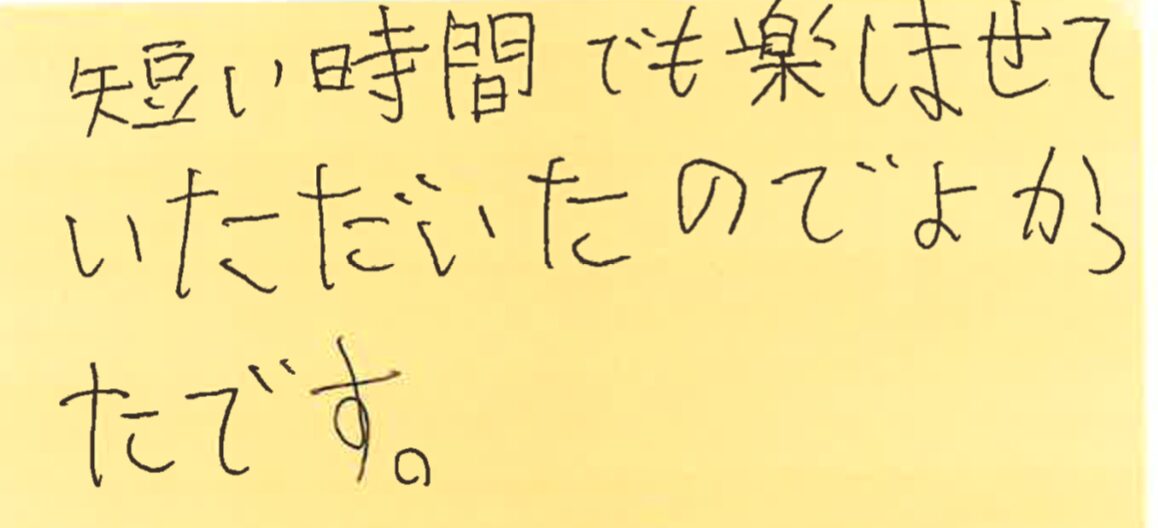 短い時間でも楽しませて
いただいたのでよかっ
たです。